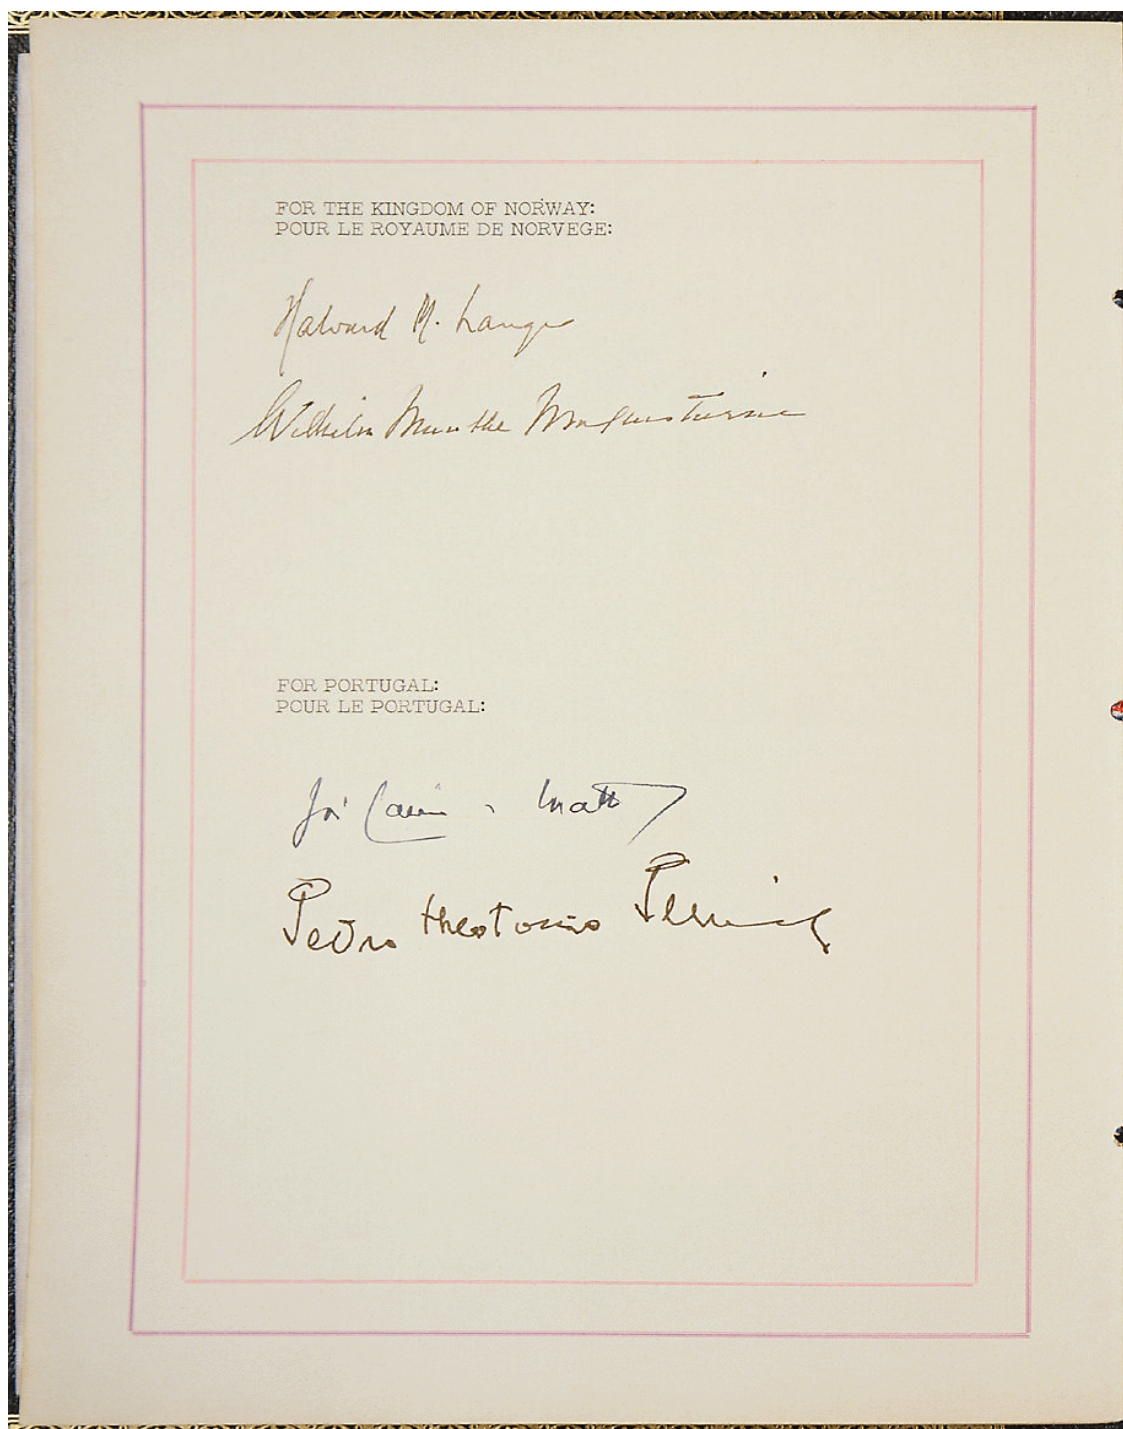 FOR THE KINGDOM OF NORWAY:
POUR LE ROYAUME DE NORVEGE:
Halvard M. Lange
Wilhelm Munthe Morgenstierne
FOR PORTUGAL:
POUR LE PORTUGAL:
José Caeiro da Matta
Pedro Theotonio Pereira